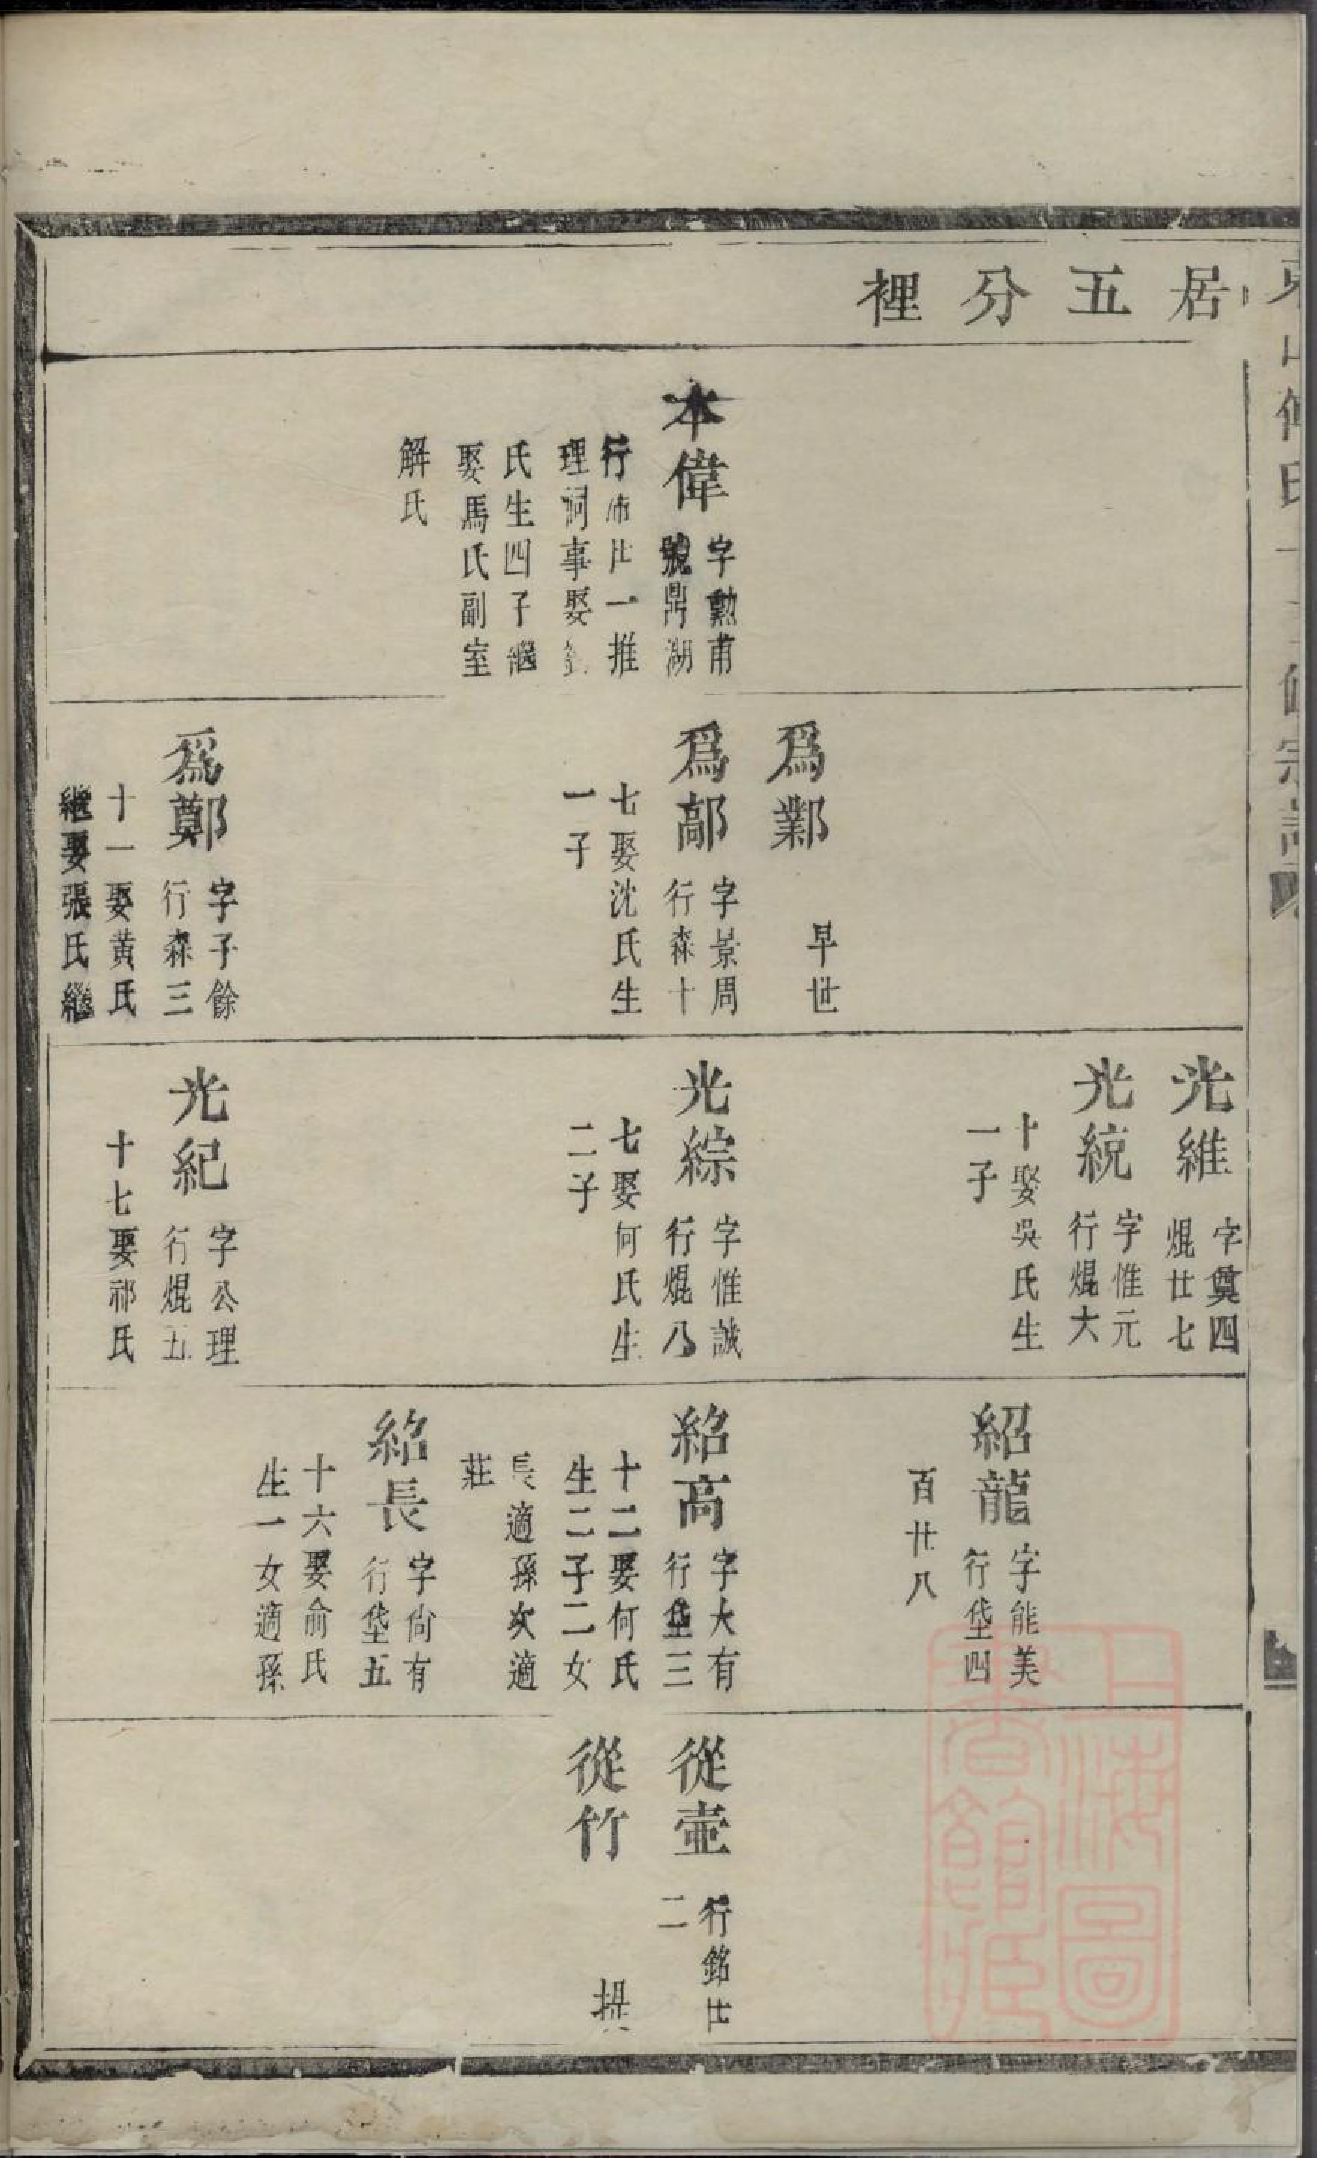 居五分裡
本偉
字勲甫
號鼎湖
行沛廿一推
理祠事娶
氏生四子繼
娶馬氏副室
解氏
爲鄴
早世
爲鄗
字景周
行森十
七娶沈氏生
一子
爲鄭
字子餘
行森三
十一娶黄氏
繼娶張氏繼
光維
字奠四
焜廿七
光統
字惟元
行焜大
十娶吳氏生
一子
光綜
字惟誠
行焜八
七娶何氏生
二子
光紀
字公理
行焜五
十七娶祁氏
紹龍
字能美
行垡四
百廿八
紹高
字大有
行垡三
十二娶何氏
生二子二女
長適孫次適
莊
紹長
字尙有
行垡五
十六娶俞氏
生一女適孫
從壷
行銘廿
二
從竹
上海圖
書館藏